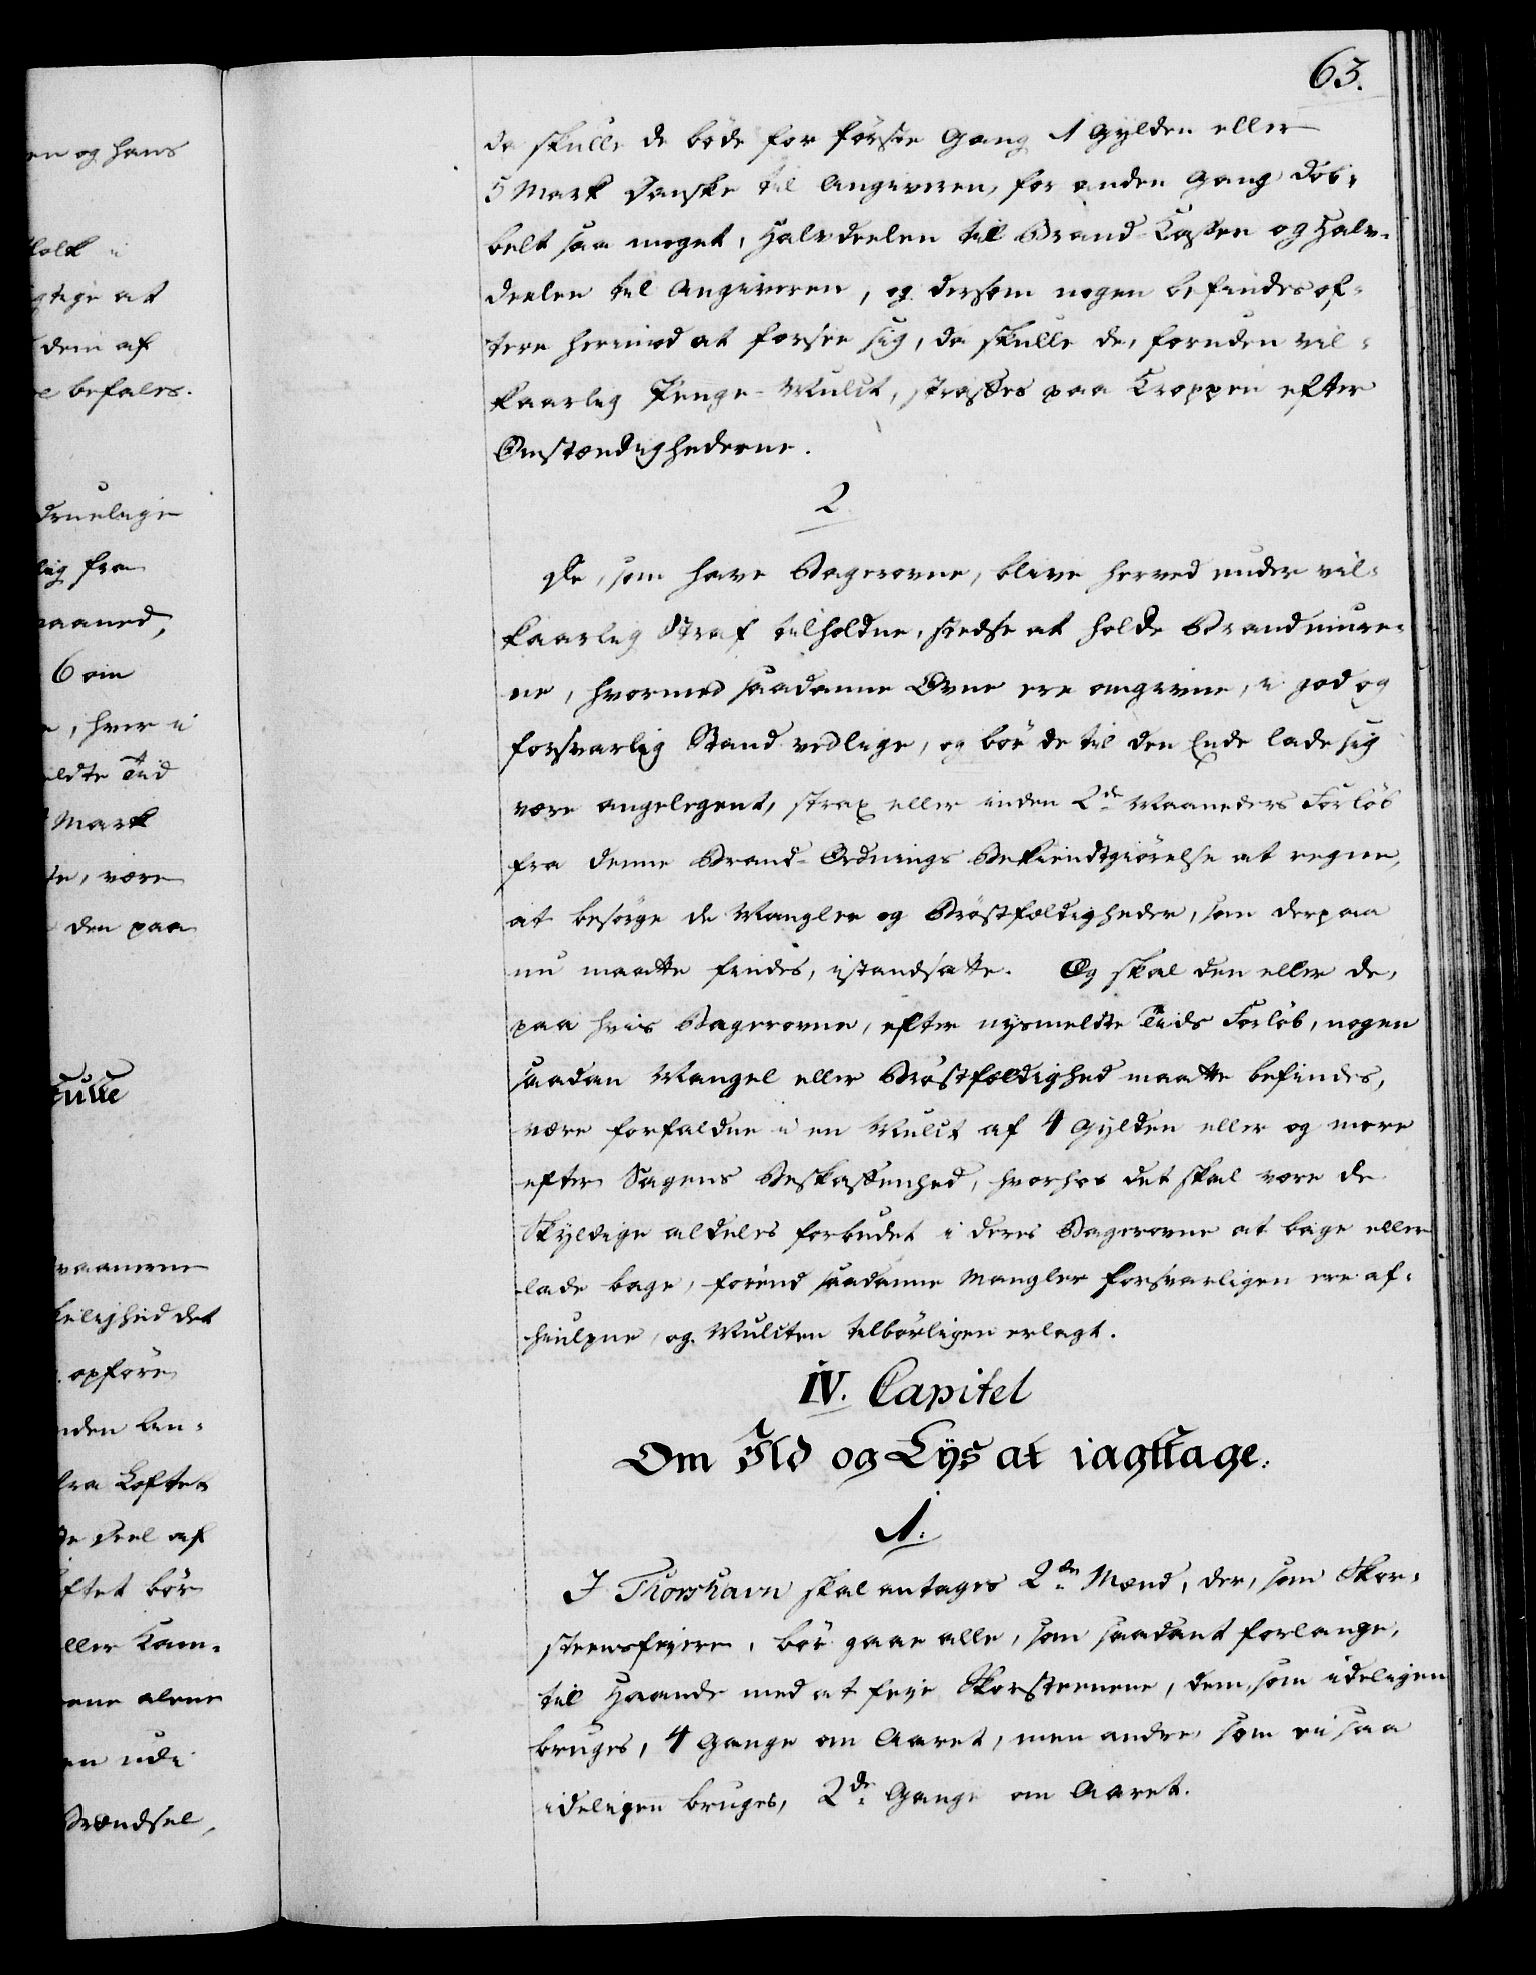 63.
da skulle de böde for förste Gang 1 Gylden eller
5 Mark Danske til Angiveren, for anden Gang dob-
belt saa meget, Halvdeelen til Brand-Cassen og Halv-
deelen til Angiveren, og dersom nogen befindes of-
tere herimod at forsee sig, da skulle de, foruden vil-
kaarlig Penge-Mulct, straffes paa Kroppen efter
Omstændighederne.
2
De, som have Bagerovne, blive herved under vil-
kaarlig Straf tilholdne, stedse at holde Brandmure-
ne, hvormed saadanne Ovne ere omgivne, i god og
forsvarlig Stand vedlige, og bör de til den Ende lade sig
være angelegent, strax eller inden 2de Maaneders Forlöb
fra denne Brand-Ordnings Bekiendtgiörelse at regne,
at besörge de Mangler og Bröstfældigheder, som derpaa
nu maatte findes, istandsatte. Og skal den eller de,
paa hvis Bagerovne, efter nysmeldte Tids Forlöb, nogen
saadan Mangel eller Bröstfældighed maatte befindes,
være forfaldne i en Mulct af 4 Gylden eller og mere
efter Sagens Beskaffenhed, hvorhos det skal være de
Skyldige aldeles forbudet i deres Bagerovne at bage eller
lade bage, förend saadanne Mangler forsvarligen ere af-
hiulpne, og Mulcten tilbörligen erlagt.
IV. Capitel
Om Ild og Lÿs at iagttage.
1.
I Thorshavn skal antages 2de Mænd, der, som Skor-
steensfeiere, bör gaae alle, som saadant forlange,
til Haande med at feie Skorsteenene, dem, som ideligen
bruges, 4 Gange om Aaret, men andre, som ei saa
ideligen bruges, 2de Gange om Aaret.